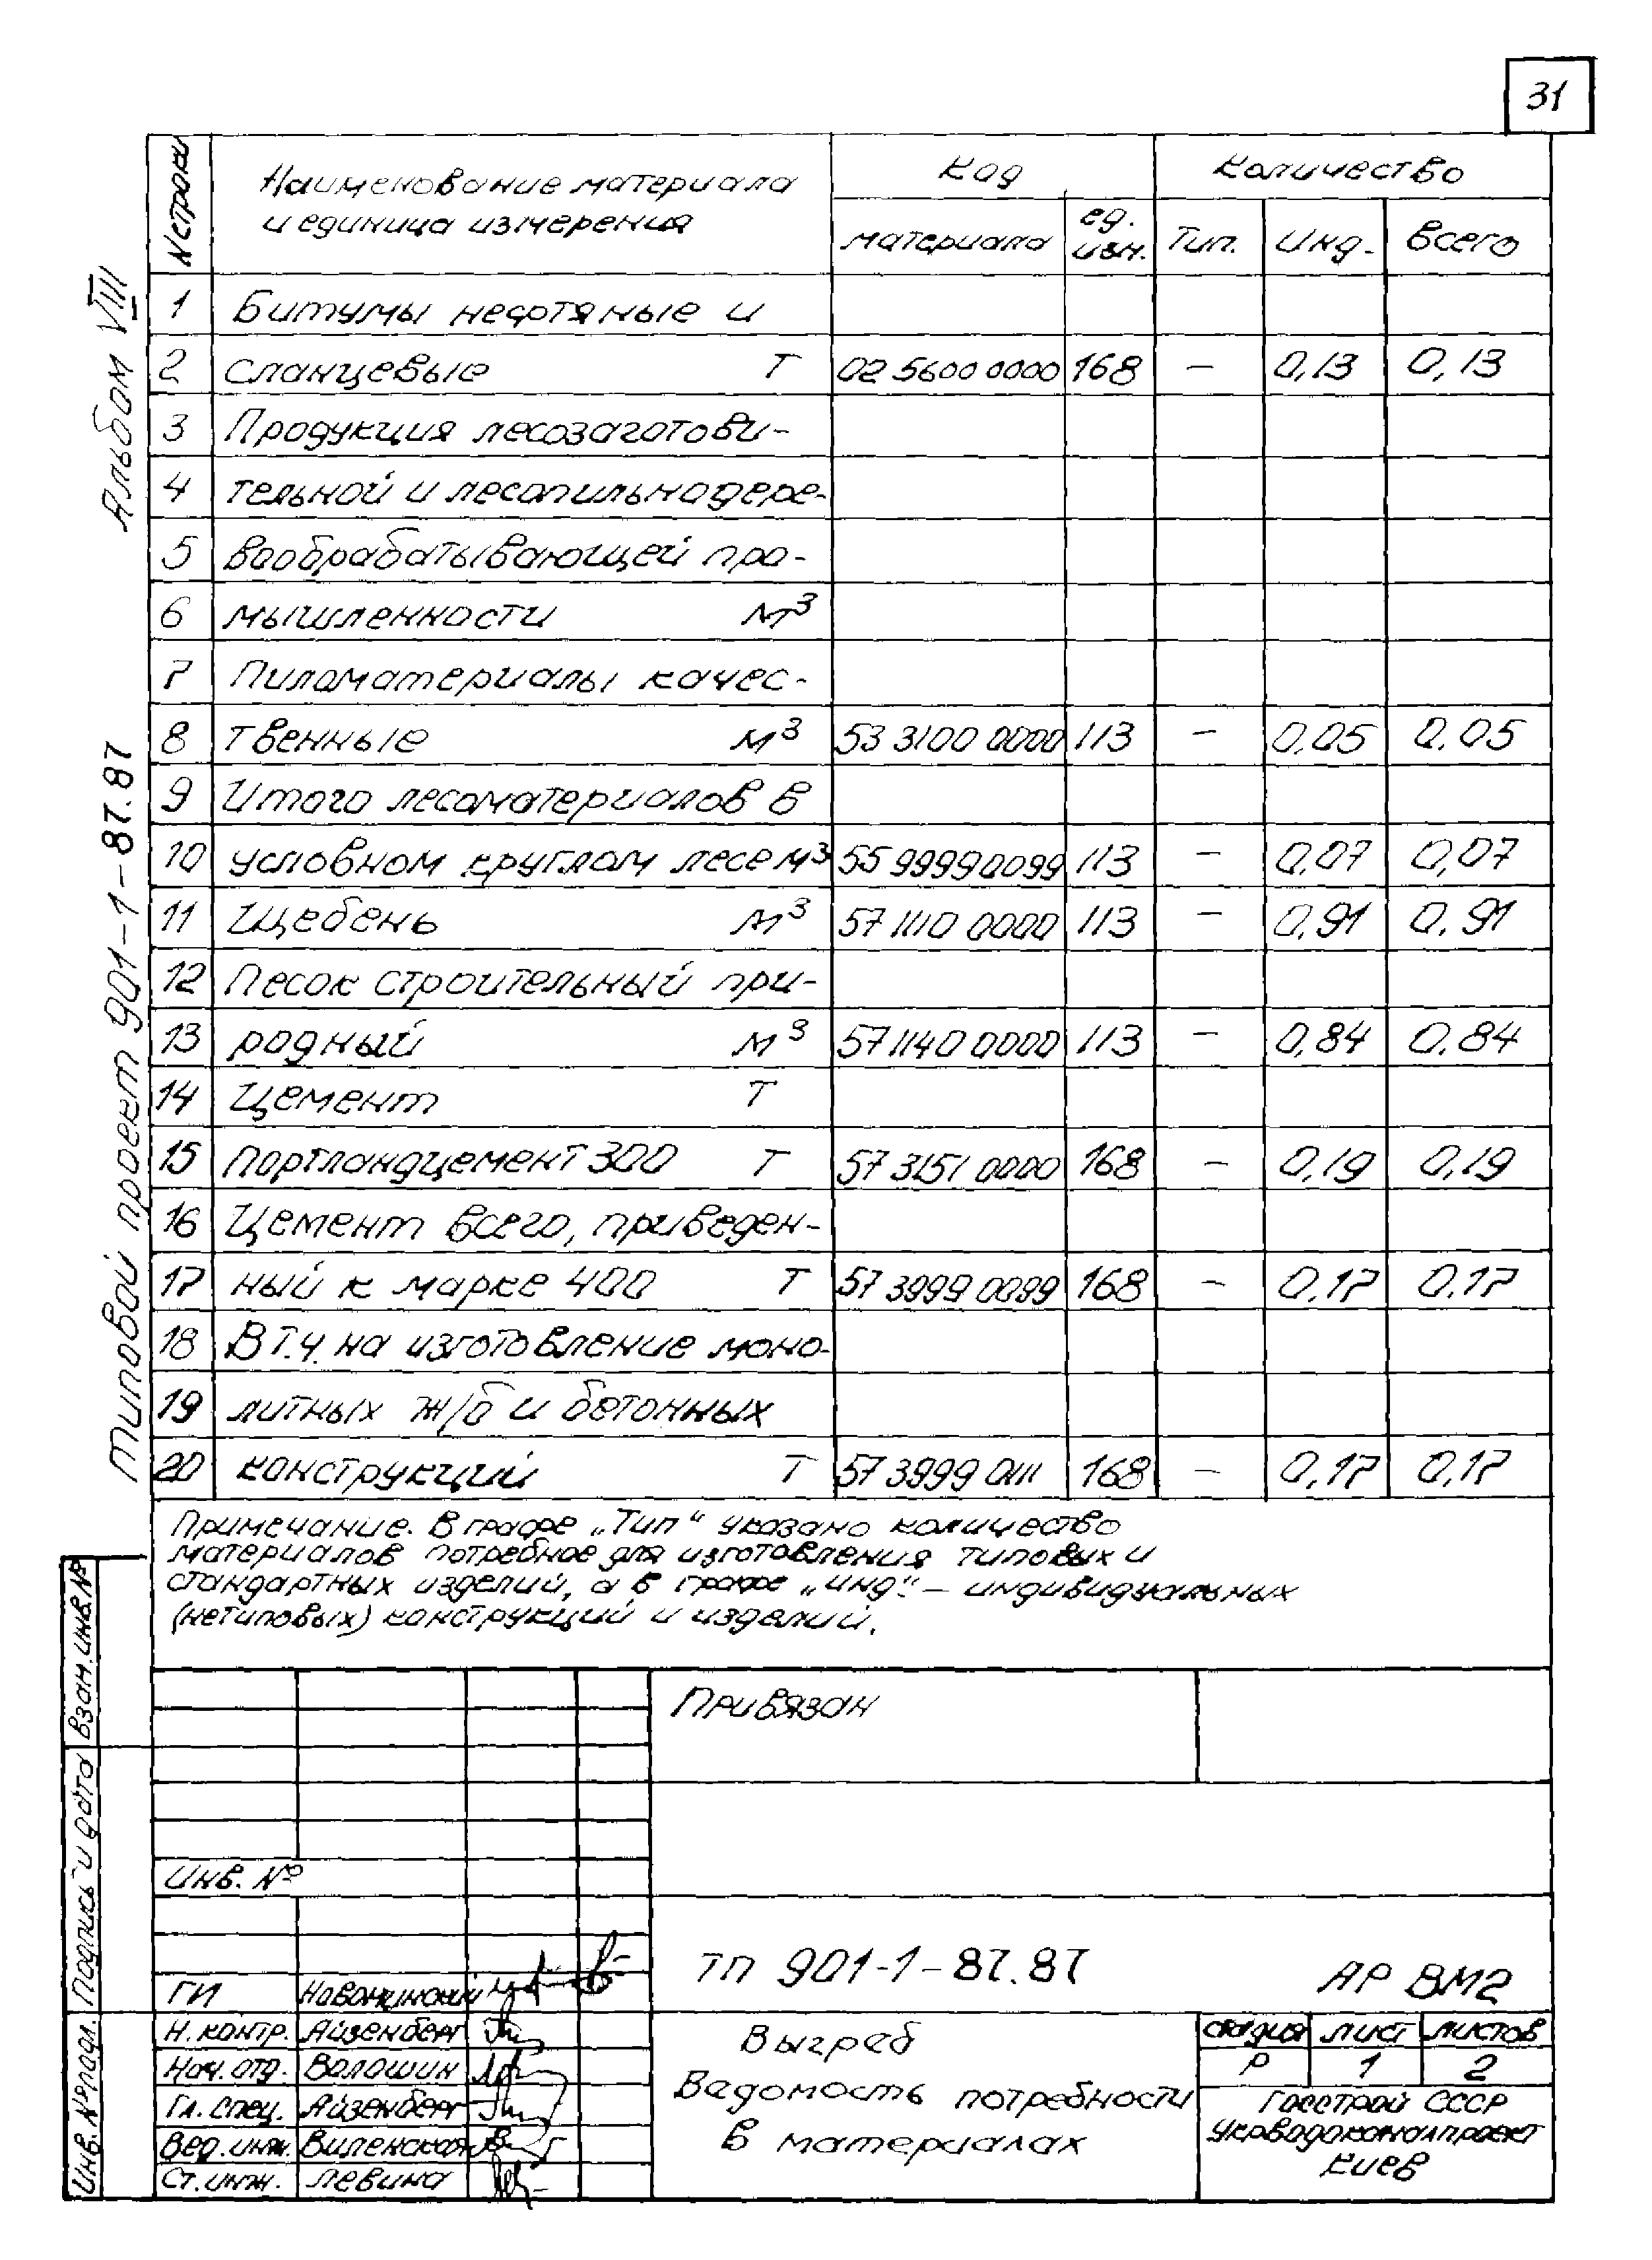 31
N строки
Наименование материала
и единица измерения
Код
Количество
материала
ед.
изм.
Тип.
Инд.
Всего
1 Битумы нефтяные и
2 сланцевые Т 02 5600 0000 168 – 0,13 0,13
3 Продукция лесозаготови-
4 тельной и лесопильнодере-
5 вообрабатывающей про-
6 мышленности м³
7 Пиломатериалы качес-
8 твенные м³ 53 3100 0000 113 – 0,05 0,05
9 Итого лесоматериалов в
10 условном круглом лесе м³ 55 9999 0099 113 – 0,07 0,07
11 Щебень м³ 57 1110 0000 113 – 0,91 0,91
12 Песок строительный при-
13 родный м³ 57 1140 0000 113 – 0,84 0,84
14 Цемент Т
15 Портландцемент 300 Т 57 3151 0000 168 – 0,19 0,19
16 Цемент всего, приведен-
17 ный к марке 400 Т 57 3999 0099 168 – 0,17 0,17
18 В т.ч. на изготовление моно-
19 литных ж/б и бетонных
20 конструкций Т 57 3999 0111 168 – 0,17 0,17
Примечание. В графе „Тип“ указано количество
материалов потребное для изготовления типовых и
стандартных изделий, а в графе „инд“. – индивидуальных
(нетиповых) конструкций и изделий.
Альбом VIII
Типовой проект 901-1-87.87
Взам. инв. №
Подпись и дата
Инв. № подл.
Привязан
Инв. №
ТП 901-1-87.87 АР ВМ2
ГИ
Н. контр. Айзенберг
Нач. отд. Волошин
Гл. спец. Айзенберг
Вед. инж. Виленская
Ст. инж. Левина
Выгреб
Ведомость потребности
в материалах
стадия лист листов
Р 1 2
Госстрой СССР
Укрводоканалпроект
Киев